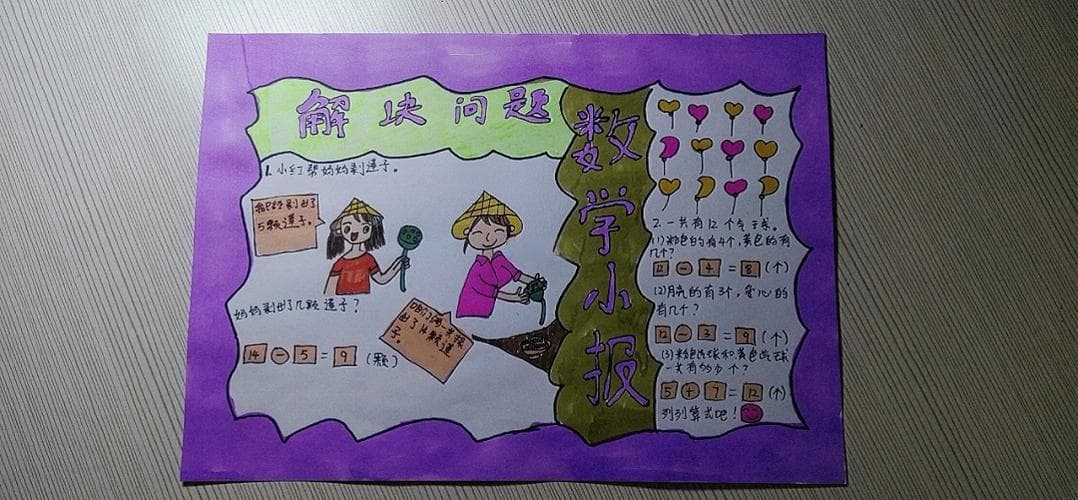 解决问题
数学小报
1.小红帮妈妈剥莲子。
我已经剥出了
5颗莲子。
咱们俩一共摄
出了14颗莲
子。
妈妈剥出了几颗莲子?
14-5=9(颗)
2.一共有12个气球。
(1)粉色的有4个,黄色的有
几个?
12-4=8(个)
(2)月亮的有3个,爱心的
有几个?
12-3=9(个)
(3)粉色气球和黄色气球
一共有多少个?
5+7=12(个)
列列算式吧!